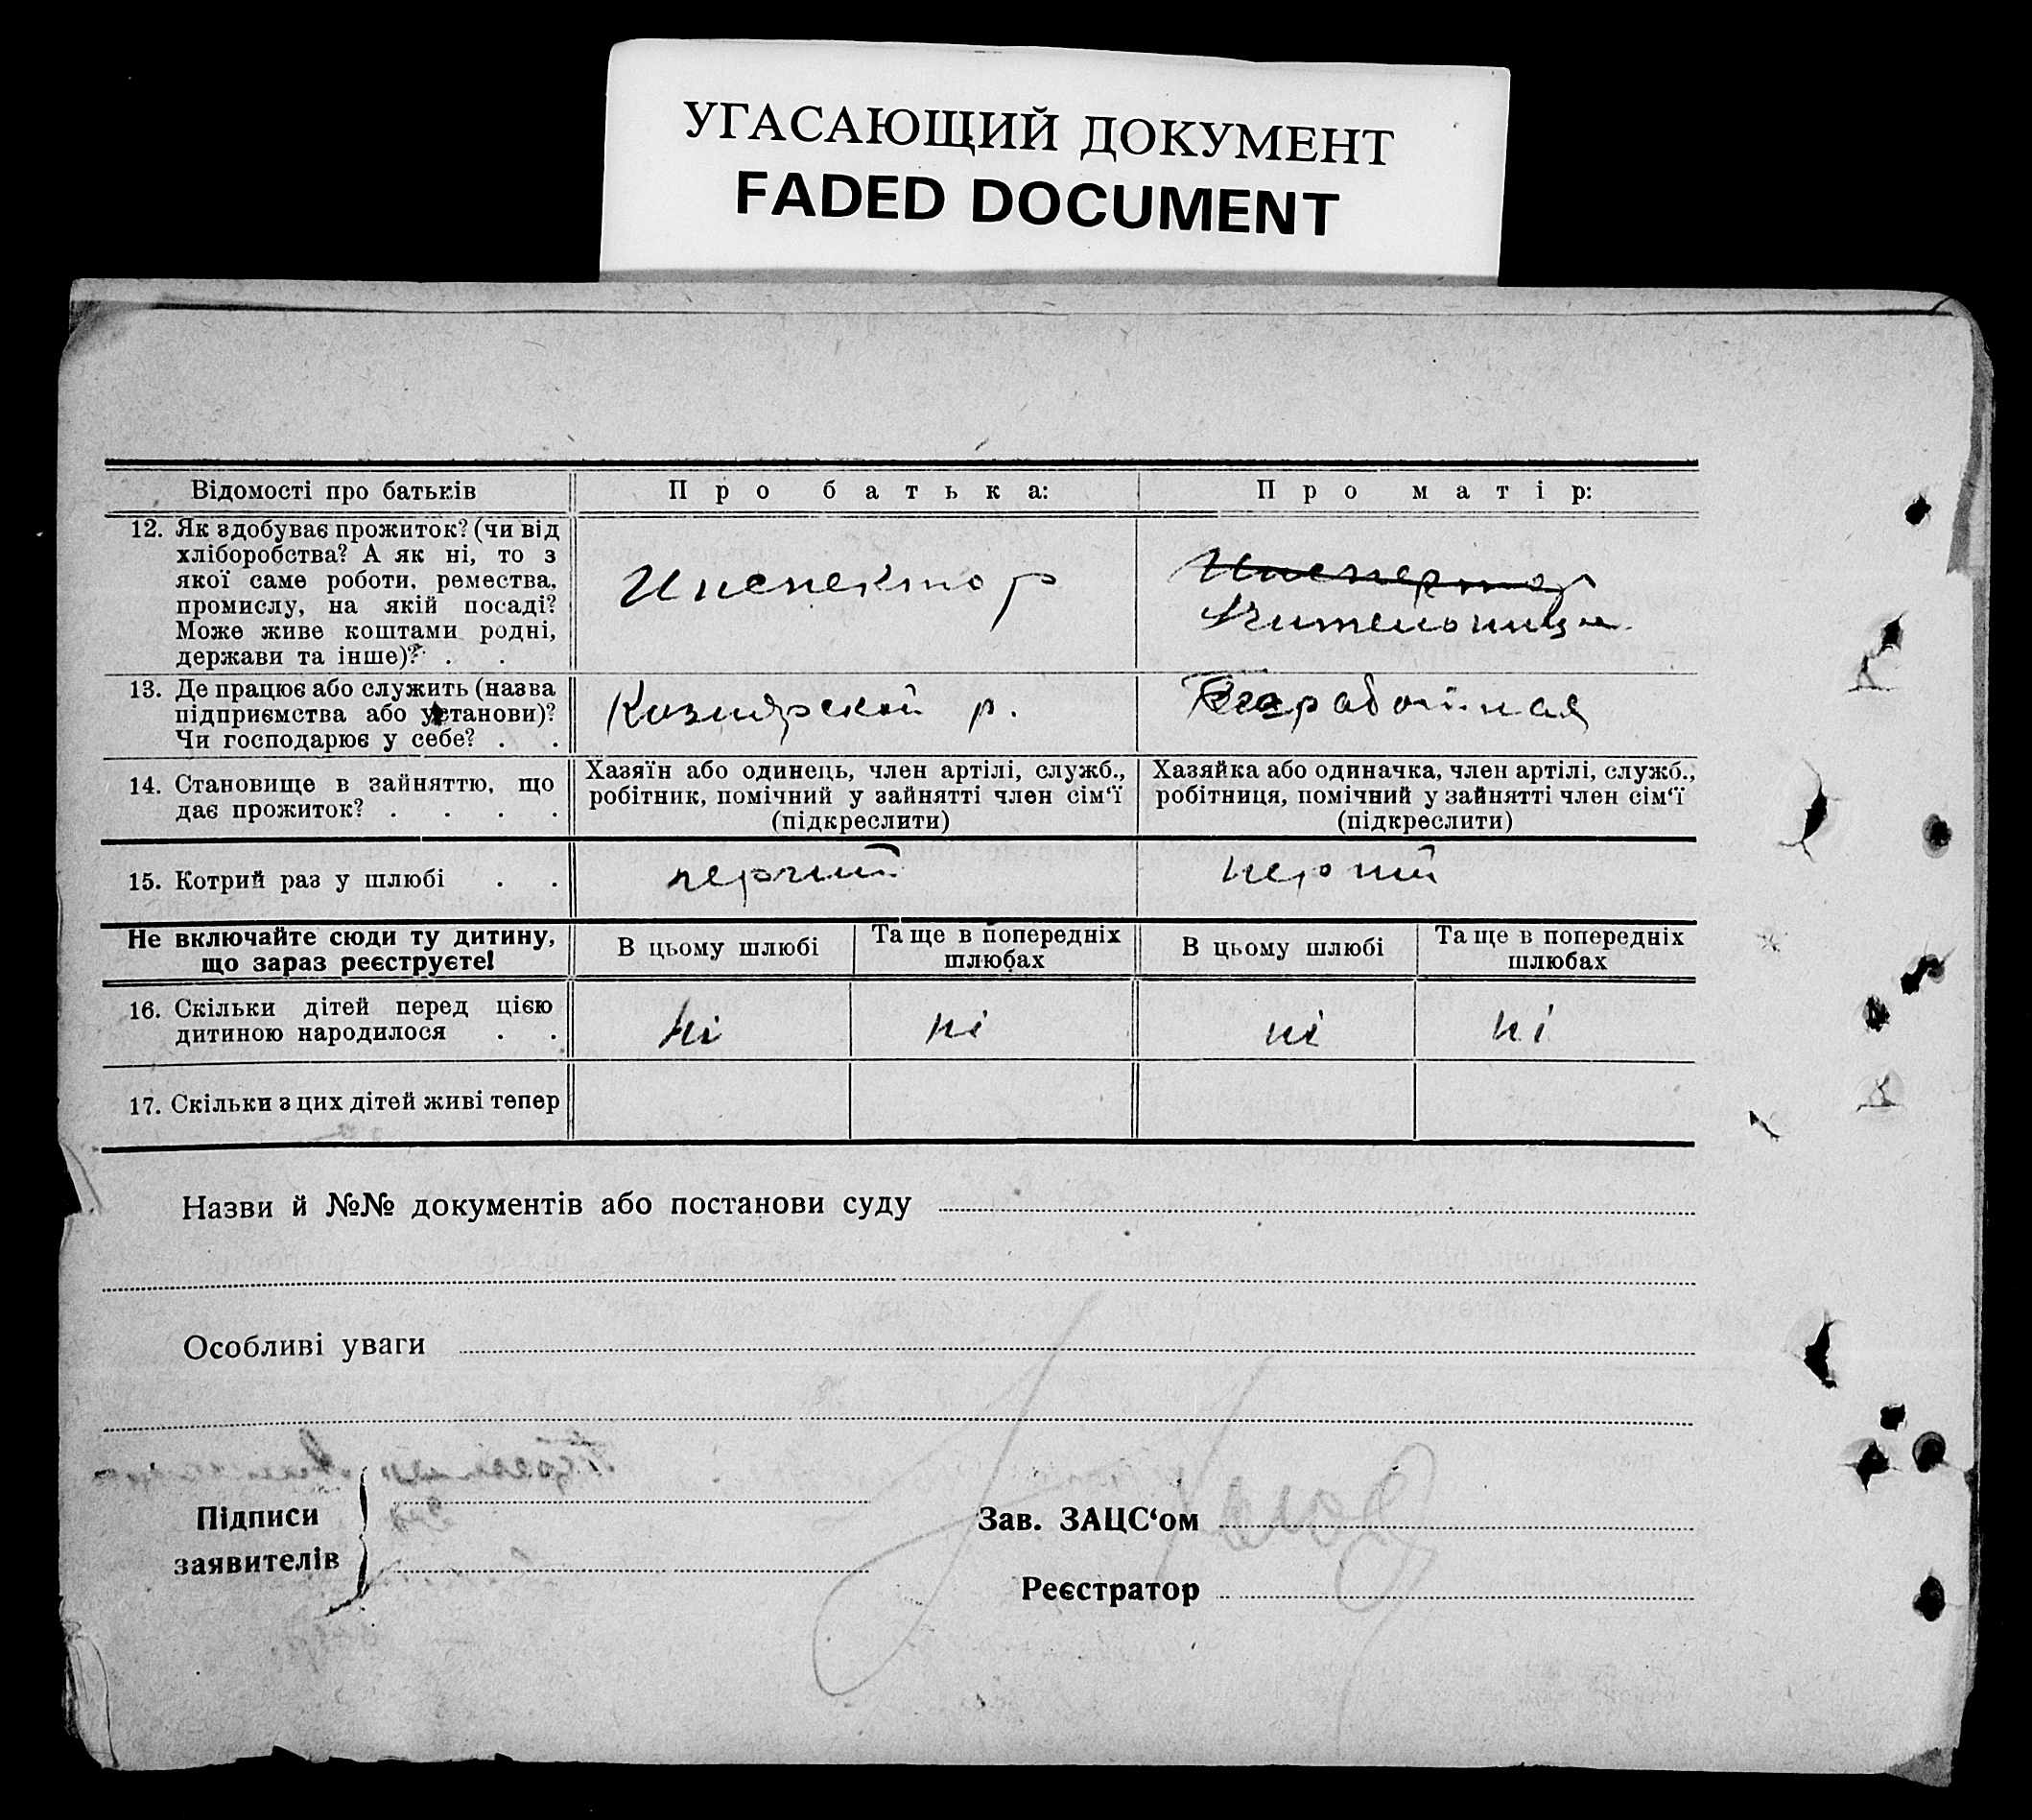 УГАСАЮЩИЙ ДОКУМЕНТ
FADED DOCUMENT
Відомості про батьків
Про батька:
Про матір:
12. Як здобуває прожиток? (чи від
хліборобства? А як ні, то з
якої саме роботи, ремества,
промислу, на якій посаді?
Може живе коштами родні,
держави та інше)? . .
Инспектор
Инспектор
Учительница
13. Де працює або служить (назва
підприємства або установи)?
Чи господарює у себе? . .
р.
Безработная
14. Становище в зайняттю, що
дає прожиток? . . . .
Хазяїн або одинець, член артілі, служб.,
робітник, помічний у зайнятті член сім‘ї
(підкреслити)
Хазяйка або одиначка, член артілі, служб.,
робітниця, помічний у зайнятті член сім‘ї
(підкреслити)
15. Котрий раз у шлюбі . .
перший
перший
Не включайте сюди ту дитину,
що зараз реєструєте!
В цьому шлюбі
Та ще в попередніх
шлюбах
В цьому шлюбі
Та ще в попередніх
шлюбах
16. Скільки дітей перед цією
дитиною народилося . .
ні
ні
ні
ні
17. Скільки з цих дітей живі тепер
Назви й №№ документів або постанови суду
Особливі уваги
Підписи
заявителів
Зав. ЗАЦС‘ом
Реєстратор